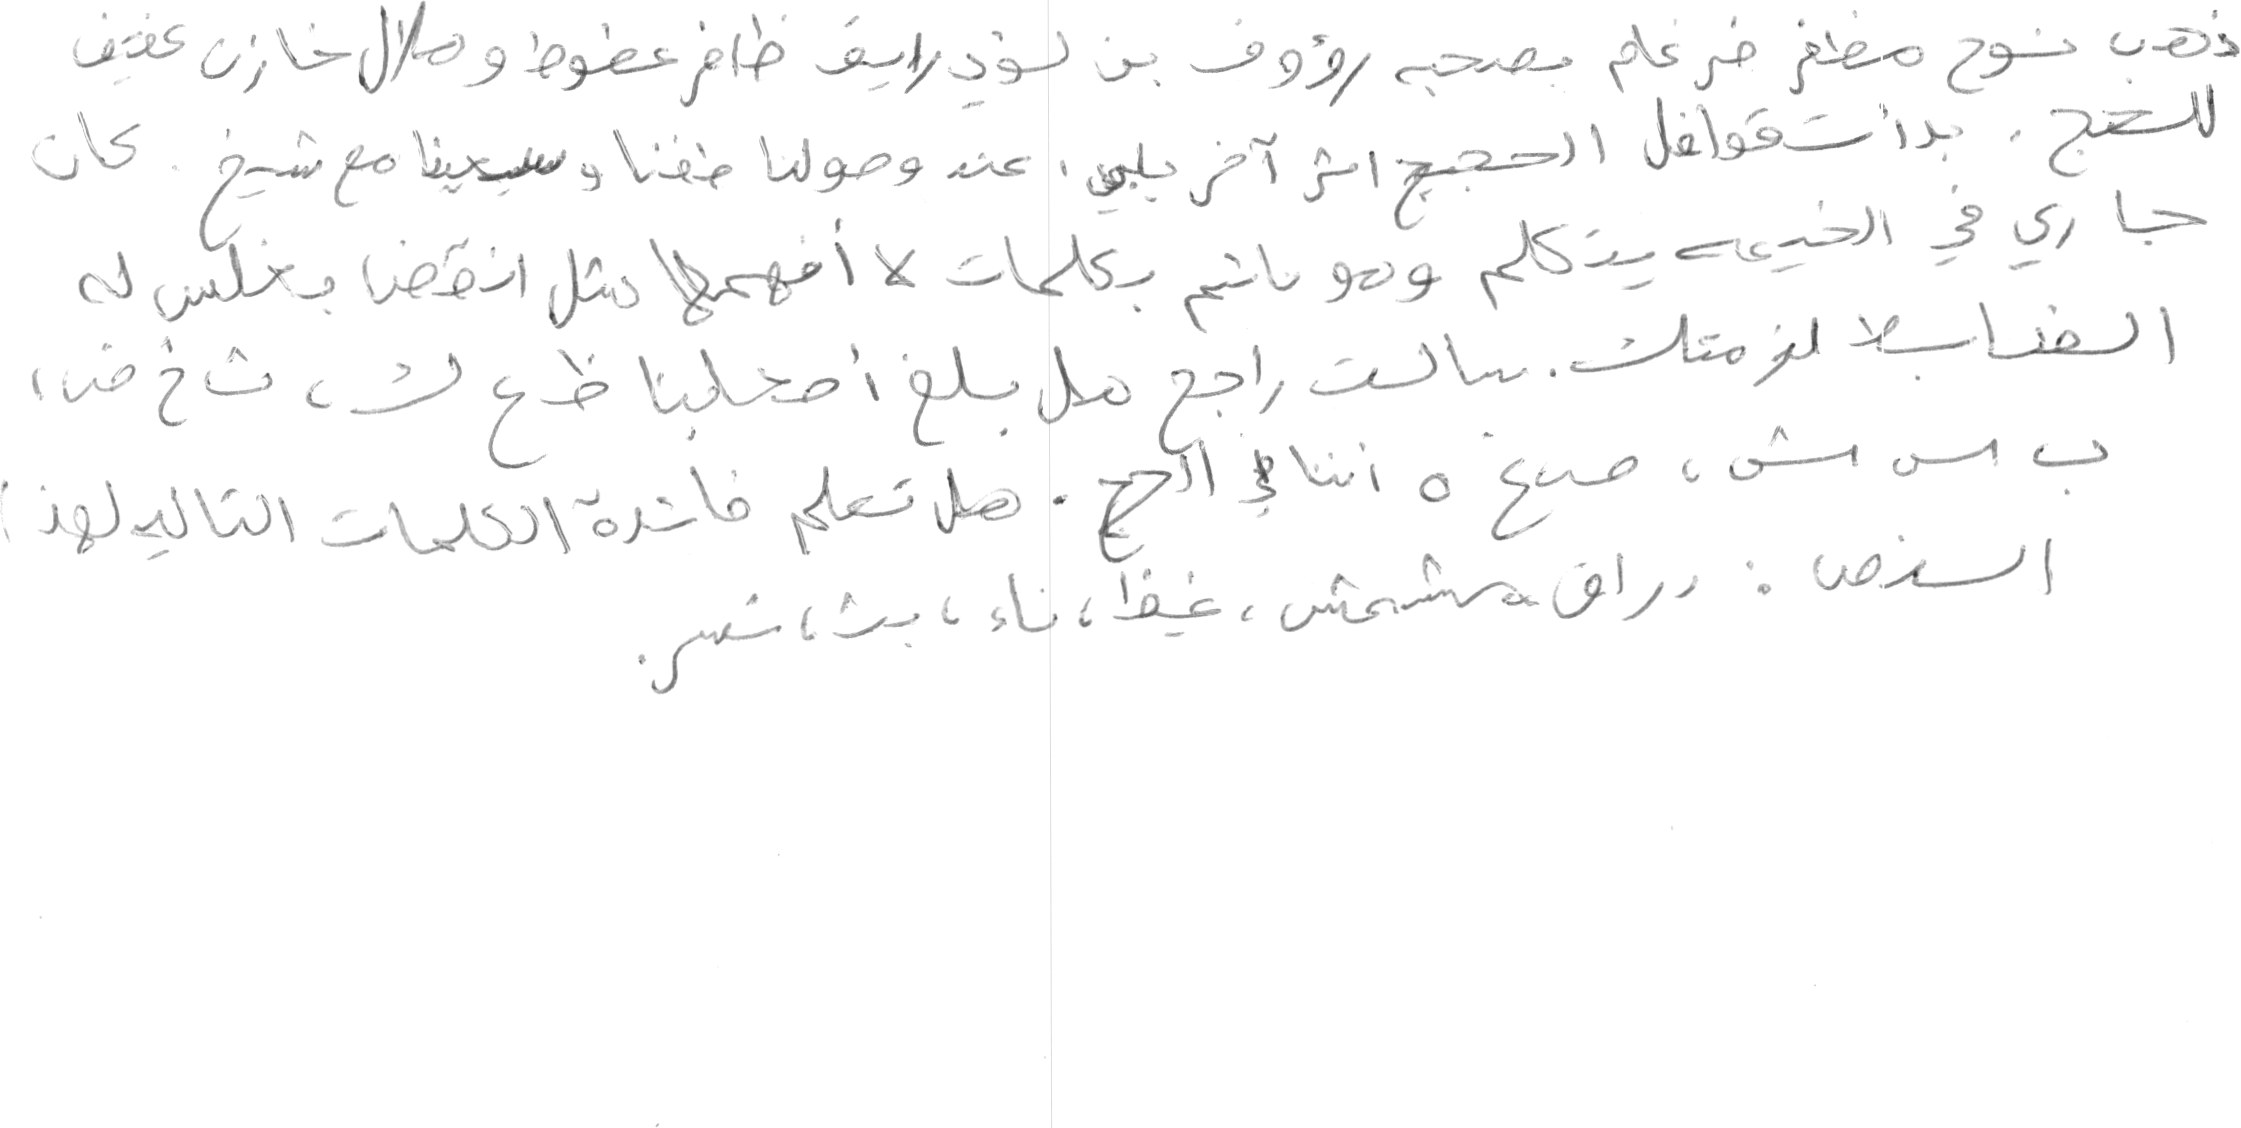 ذهب نوح مظفر ضرغام بصحبه رؤوف بن لؤي رايق ظافر عطوط و هلال خازن عفيف
للحج . بدأت قوافل الحجيج اثر آخر يلبي ، عند وصولنا طفنا و سعينا مع شيخ . كان
جاري في الخيمه يتكلم وهو نائم بكلمات لا أفهمها مثل
بلا لازمتك . سالت راجح هل بلغ أصحابنا ظ ع ك ، ث خ ض ،
ب س ش ، ص غ ه اننا في الحج . هل تعلم فائدة الكلمات التاليه لهذا
النص : دراق ، مشمش ، غيظ ، ناء ، بث ،